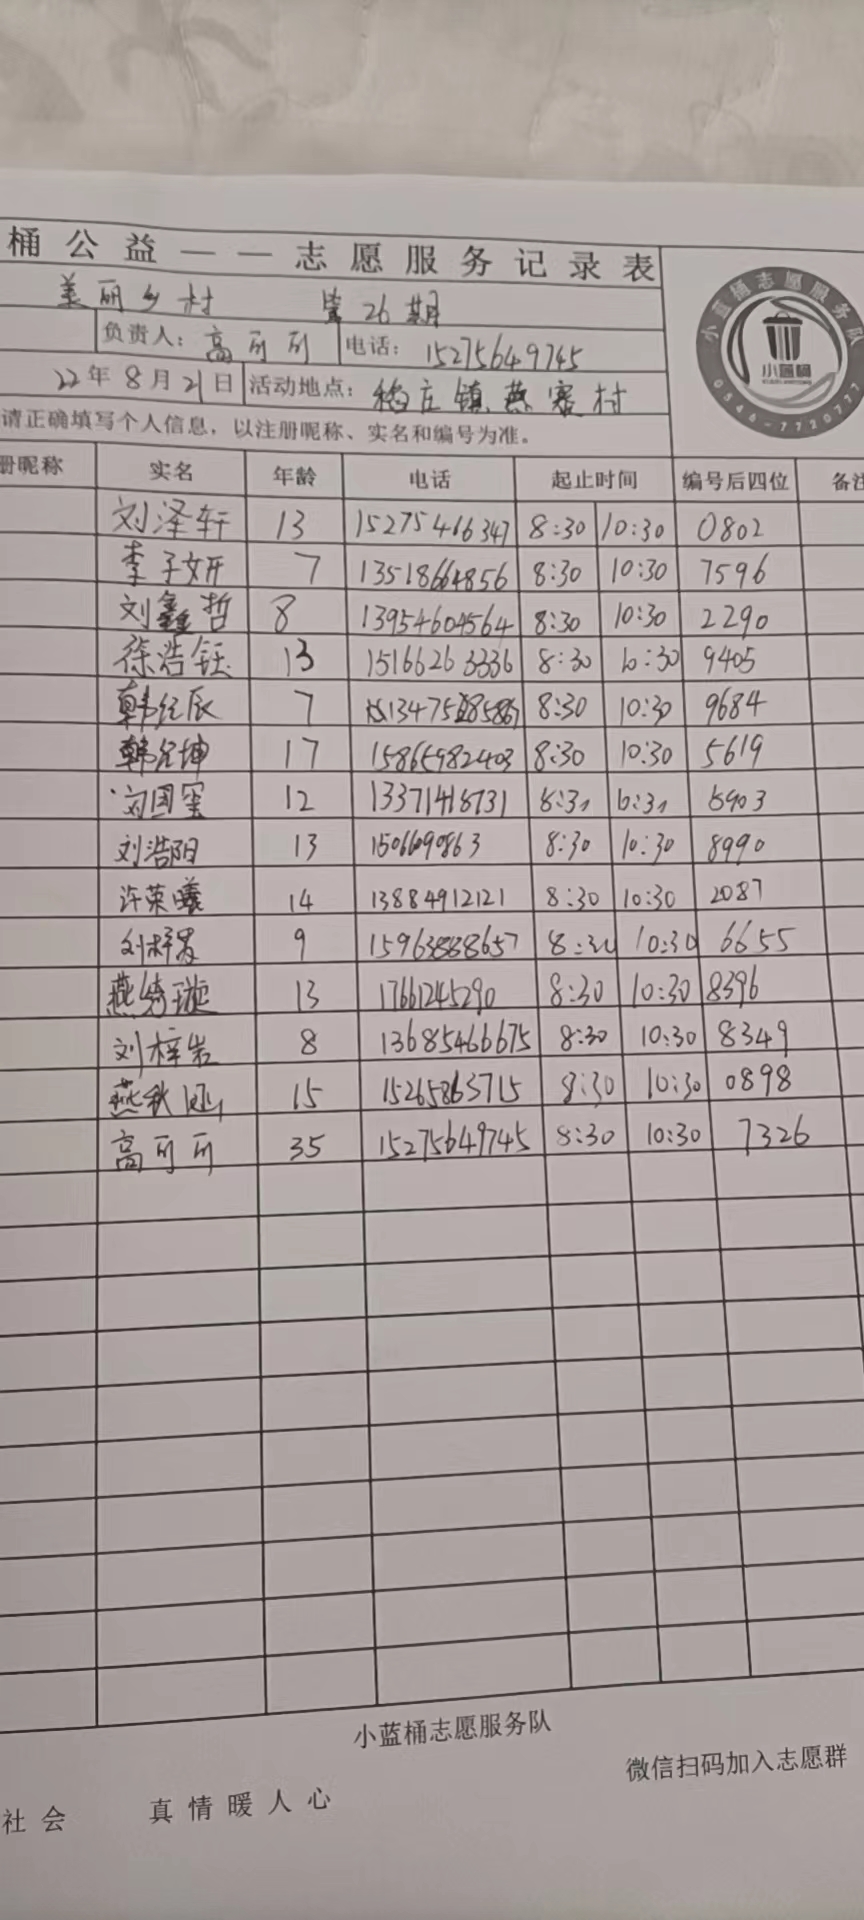 桶公益——志愿服务记录表
美丽乡村 第26期
负责人: 高可可 电话: 15275649745
22年8月21日 活动地点: 杨庄镇燕寨村
请正确填写个人信息，以注册昵称、实名和编号为准。
小蓝桶志愿服务队
小蓝桶
0546-7720777
册昵称 实名 年龄 电话 起止时间 编号后四位 备注
刘泽轩 13 15275466347 8:30 10:30 0802
李子妍 7 13518664856 8:30 10:30 7596
刘鑫哲 8 13954604564 8:30 10:30 2290
徐浩钰 13 15166263336 8:30 10:30 9405
韩 辰 7 8:30 10:30 9684
韩 坤 17 15865982403 8:30 10:30 5619
刘国 12 13371418731 8:31 10:31 8903
刘浩阳 13 1506690863 8:30 10:30 8990
许荣曦 14 13884912121 8:30 10:30 2087
刘梓 9 15963888657 8:30 10:30 6655
燕绮璇 13 17661245290 8:30 10:30 8396
刘梓岩 8 13685466675 8:30 10:30 8349
燕秋 15 15265863715 8:30 10:30 0898
高可可 35 15275649745 8:30 10:30 7326
小蓝桶志愿服务队
微信扫码加入志愿群
社会 真情暖人心